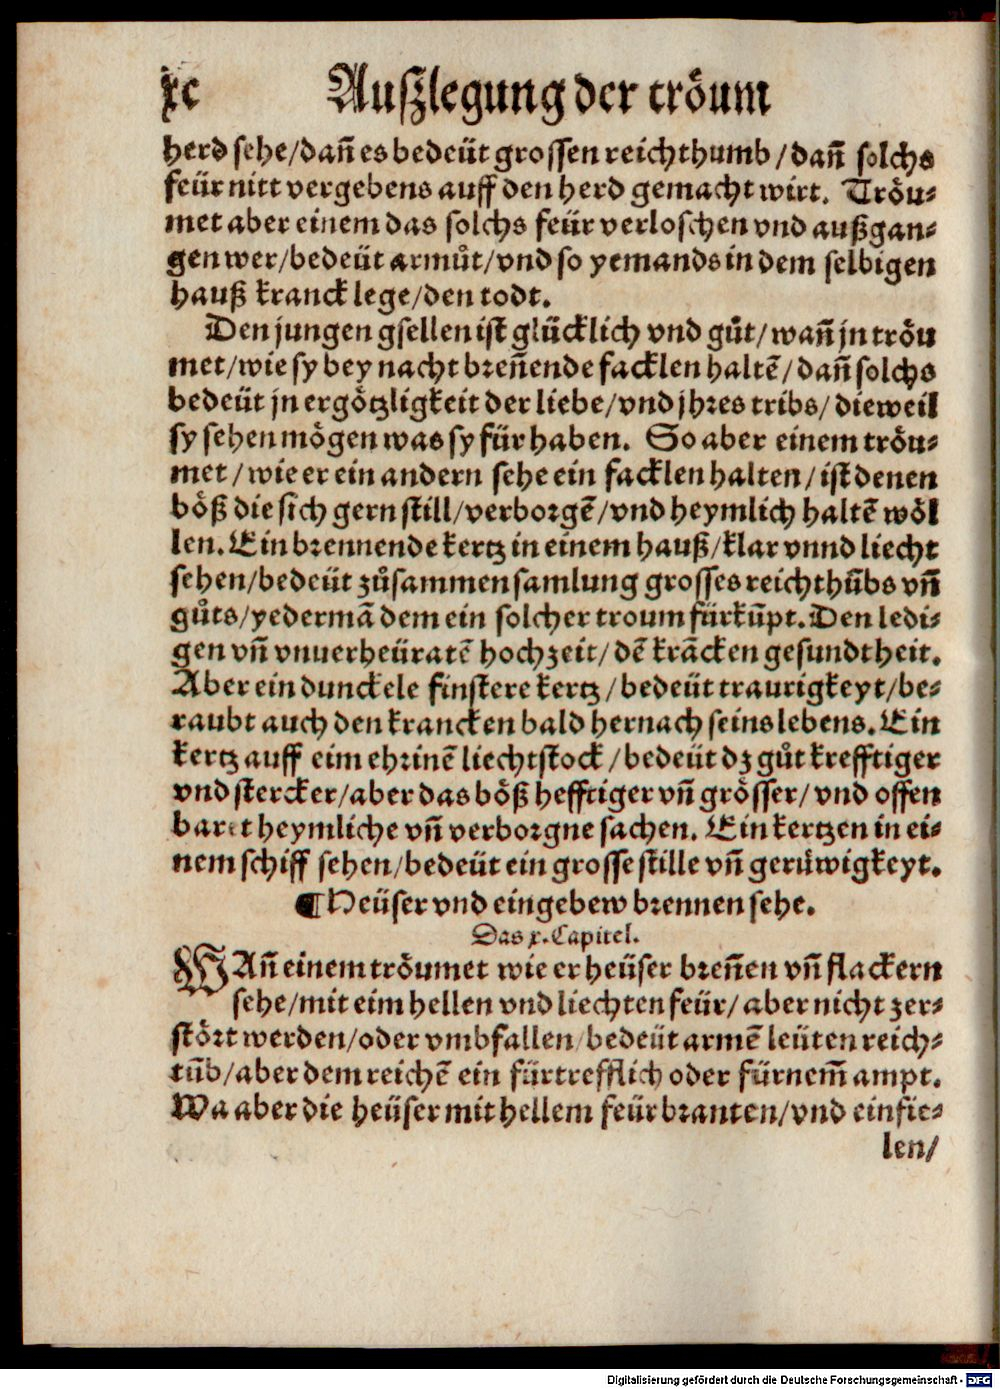 xc Auſzlegung der tröum
herd ſehe/dañ es bedeüt groſſen reichthumb/dañ ſolchs
feür nitt vergebens auff den herd gemacht wirt. Tröu-
met aber einem das ſolchs feür verloſchen vnd außgan-
gen wer/bedeüt armůt/vnd ſo yemands in dem ſelbigen
hauß kranck lege/den todt.
Den jungen gſellen iſt glücklich vnd gůt/wañ jn tröu
met/wie ſy bey nacht breñende facklen haltẽ/dañ ſolchs
bedeüt jn ergötzligkeit der liebe/vnd jhres tribs/dieweil
ſy ſehen mögen was ſy für haben. So aber einem tröu-
met/wie er ein andern ſehe ein facklen halten/iſt denen
böß die ſich gern ſtill/verborgẽ/vnd heymlich haltẽ wöl
len. Ein brennende kertz in einem hauß/klar vnnd liecht
ſehen/bedeüt zůſammen ſamlung groſſes reichthũbs vñ
gůts/yedermã dem ein ſolcher troum fürkũpt. Den ledi-
gen vñ vnuerheüratẽ hochzeit/dẽ krãcken geſundtheit.
Aber ein dunckele finſtere kertz/bedeüt traurigkeyt/be-
raubt auch den krancken bald hernach ſeins lebens. Ein
kertz auff eim ehrinẽ liechtſtock/bedeüt dz gůt krefftiger
vnd ſtercker/aber das böß hefftiger vñ gröſſer/vnd offen
baret heymliche vñ verborgne ſachen. Ein kertzen in ei-
nem ſchiff ſehen/bedeüt ein groſſe ſtille vñ gerüwigkeyt.
¶Heüſer vnd eingebew brennen ſehe.
Das x. Capitel.
WAñ einem tröumet wie er heüſer breñen vñ flackern
ſehe/mit eim hellen vnd liechten feür/aber nicht zer-
ſtört werden/oder vmbfallen/bedeüt armẽ leüten reich-
tũb/aber dem reichẽ ein fürtrefflich oder fürnem̃ ampt.
Wa aber die heüſer mit hellem feür branten/vnd einfie-
len/
Digitalisierung gefördert durch die Deutsche Forschungsgemeinschaft - DFG